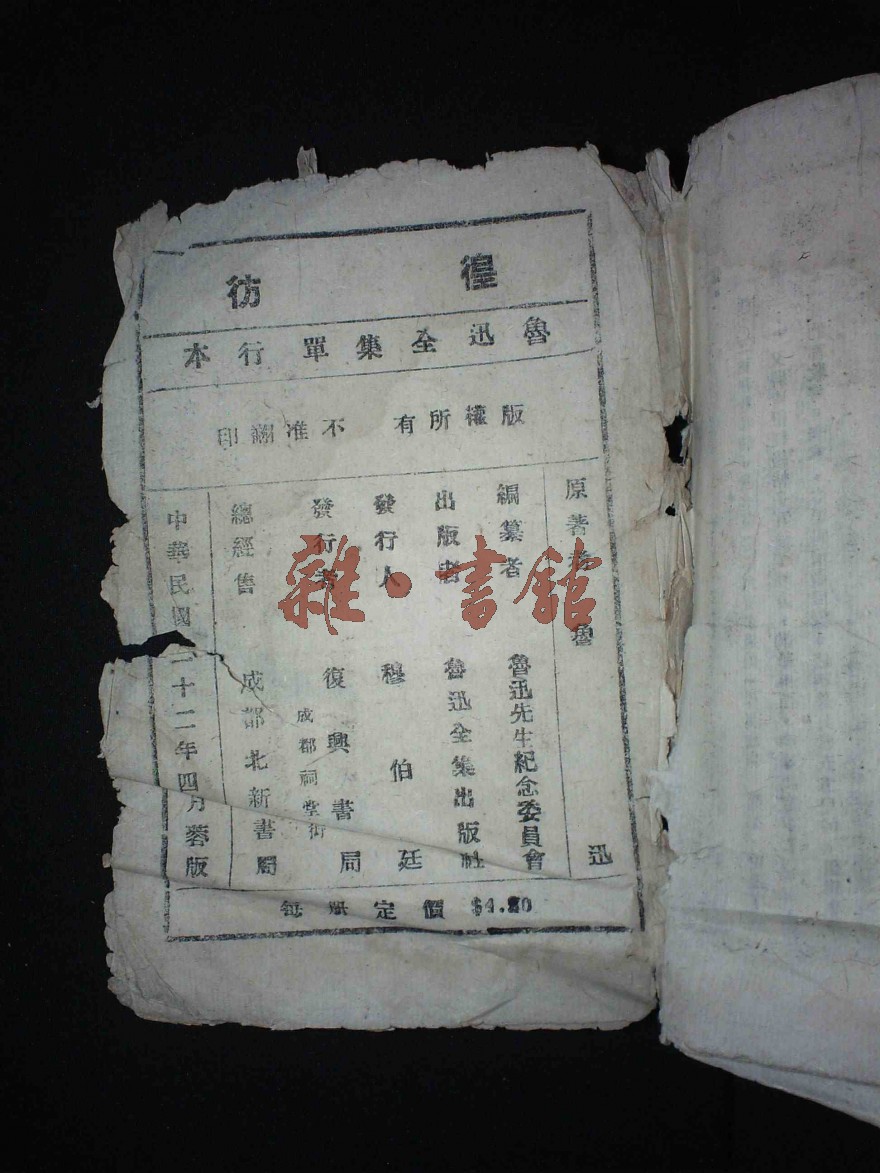 彷徨
魯迅全集單行本
版權所有 不准翻印
原著者 魯迅
編纂者 魯迅先生紀念委員會
出版者 魯迅全集出版社
發行人 穆伯廷
發行者 復興書局
成都祠堂街
總經售 成都北新書局
中華民國十二年四月蓉版
每册定價 $4.20
雜·書館